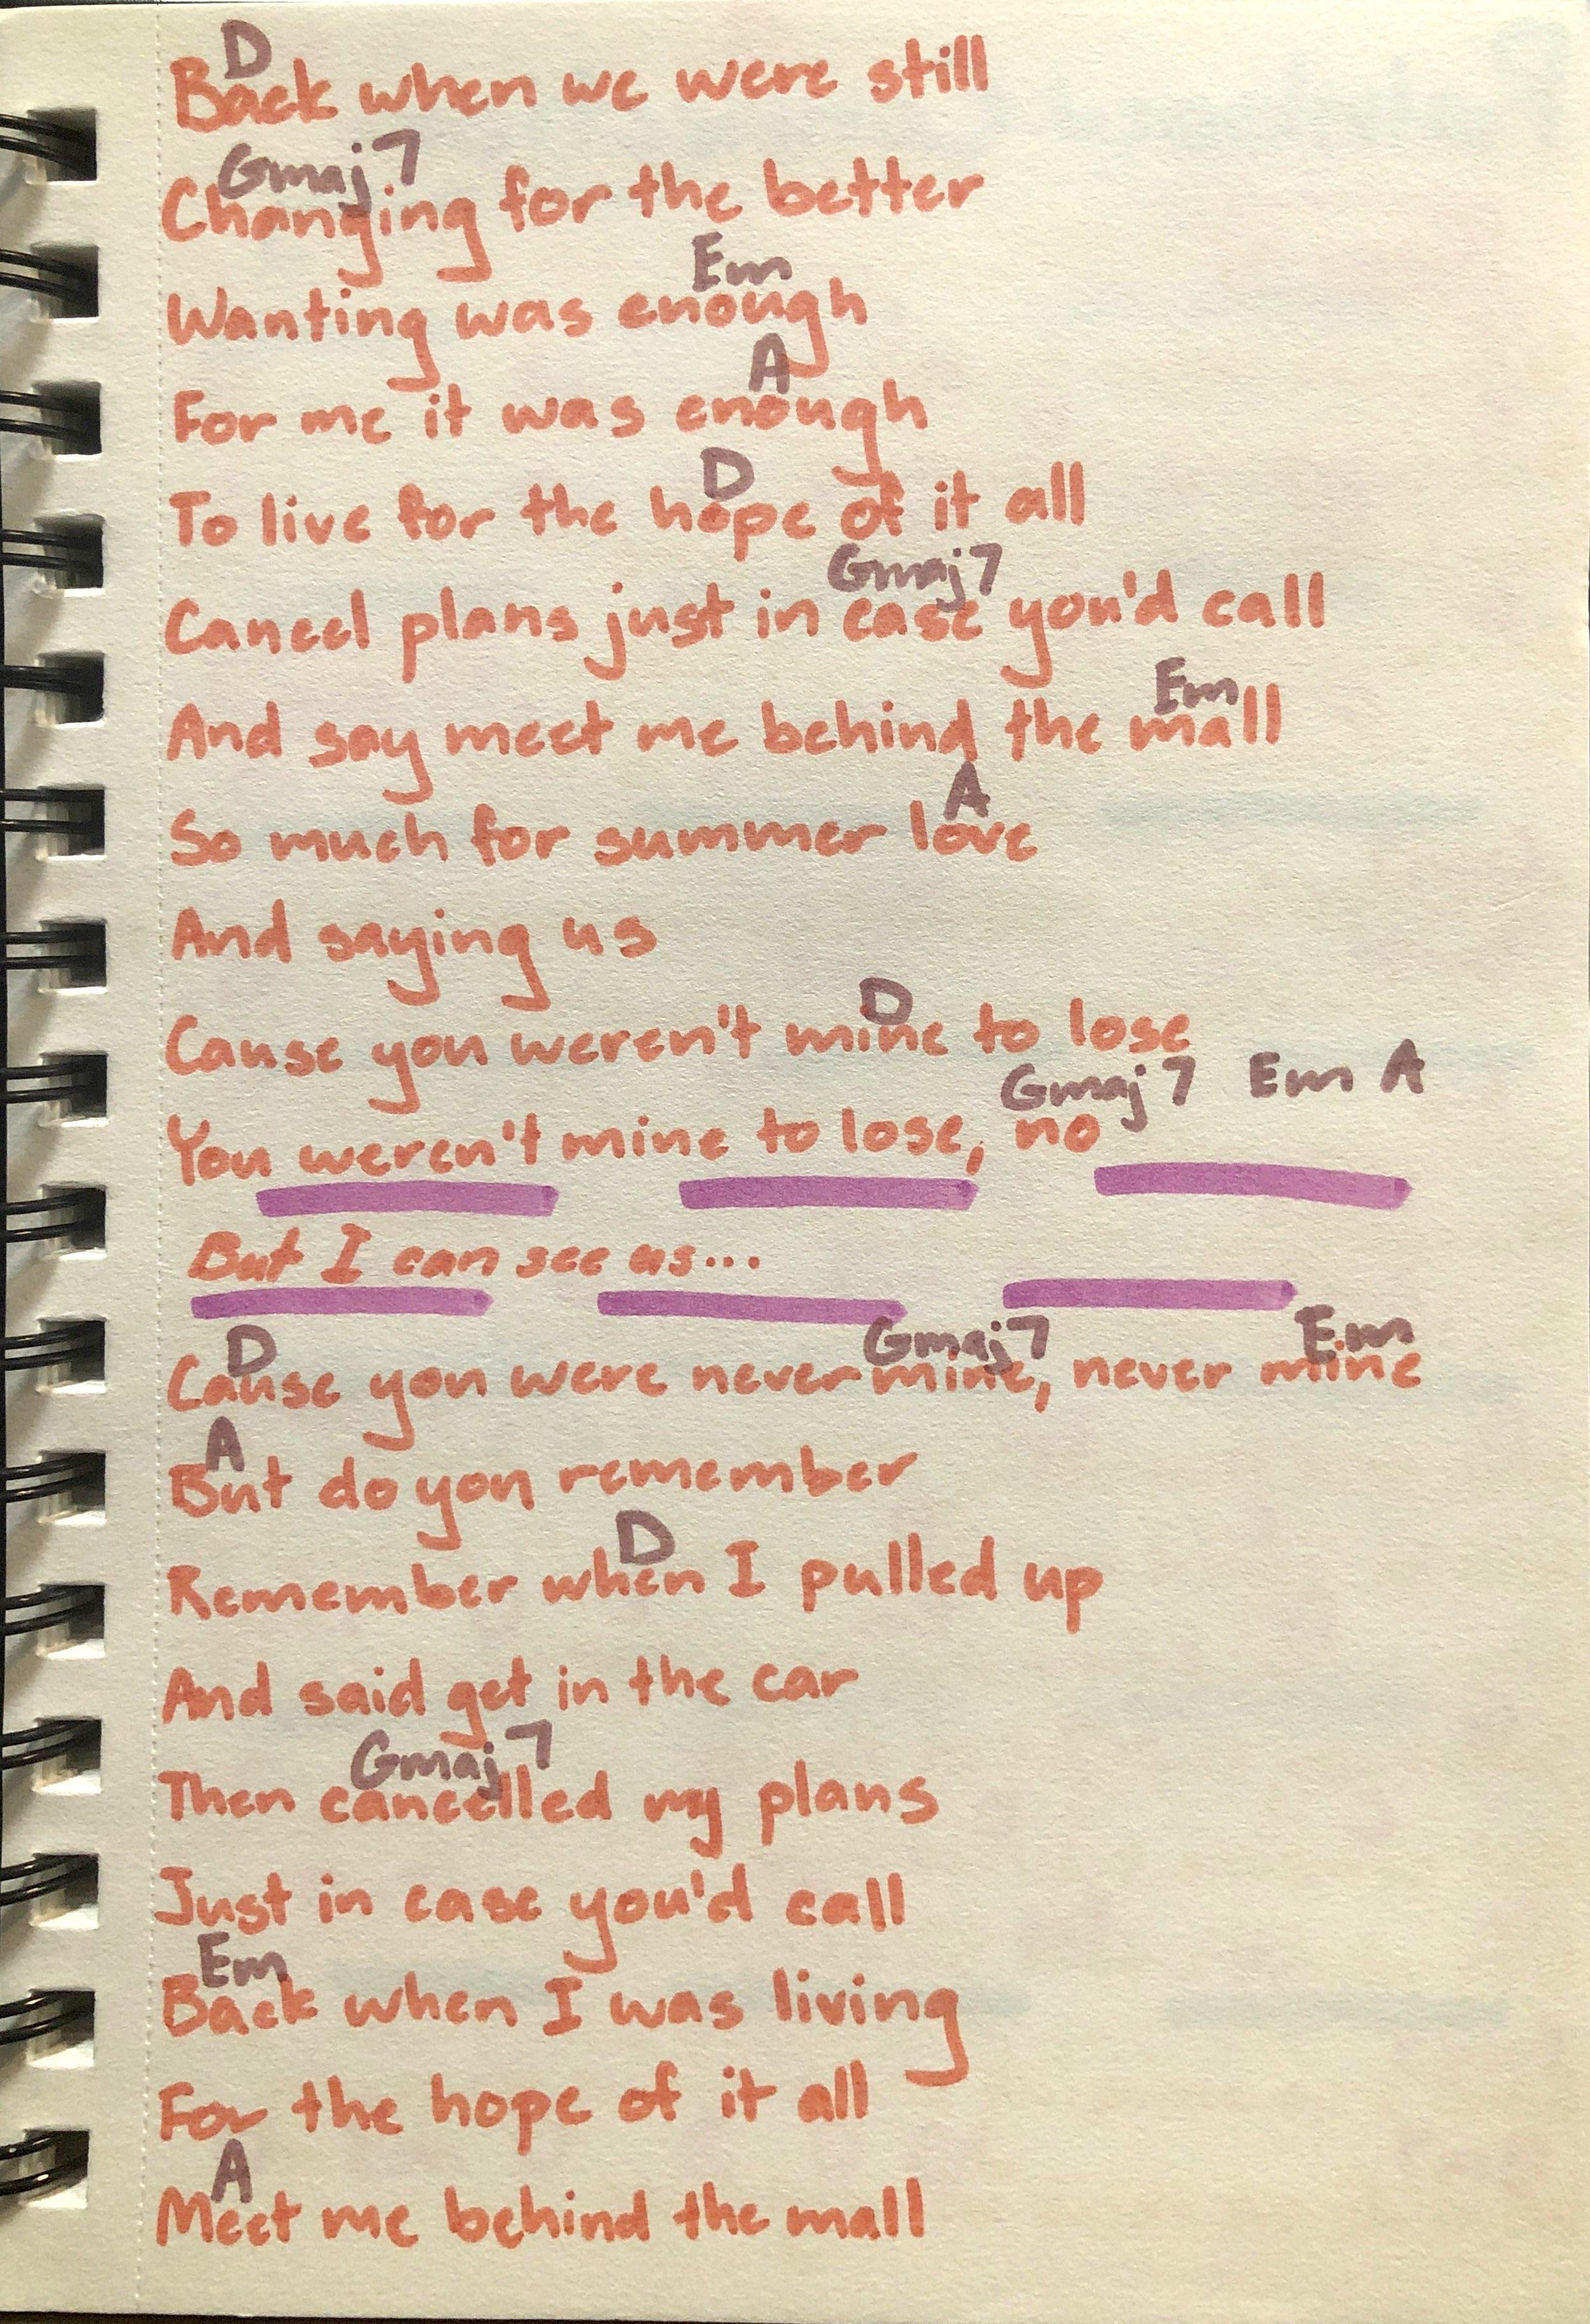 D
Back when we were still
Gmaj7
Changing for the better
Em
Wanting was enough
A
For me it was enough
D
To live for the hope of it all
Gmaj7
Cancel plans just in case you'd call
Em
And say meet me behind the mall
A
So much for summer love
And saying us
D
Cause you weren't mine to lose
Gmaj7 Em A
You weren't mine to lose, no
But I can see us...
D Gmaj7 Em
Cause you were never mine, never mine
A
But do you remember
D
Remember when I pulled up
And said get in the car
Gmaj7
Then cancelled my plans
Just in case you'd call
Em
Back when I was living
For the hope of it all
A
Meet me behind the mall